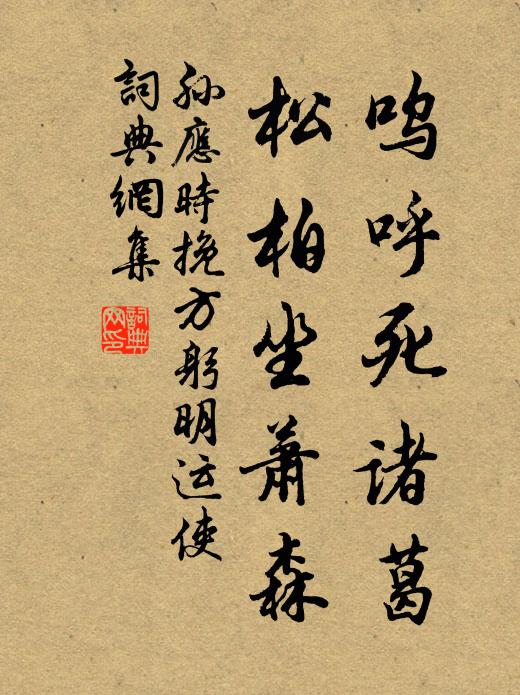 呜呼死诸葛
松柏坐萧森
孙應時挽方躬明运使
詞典網集
詞典网印